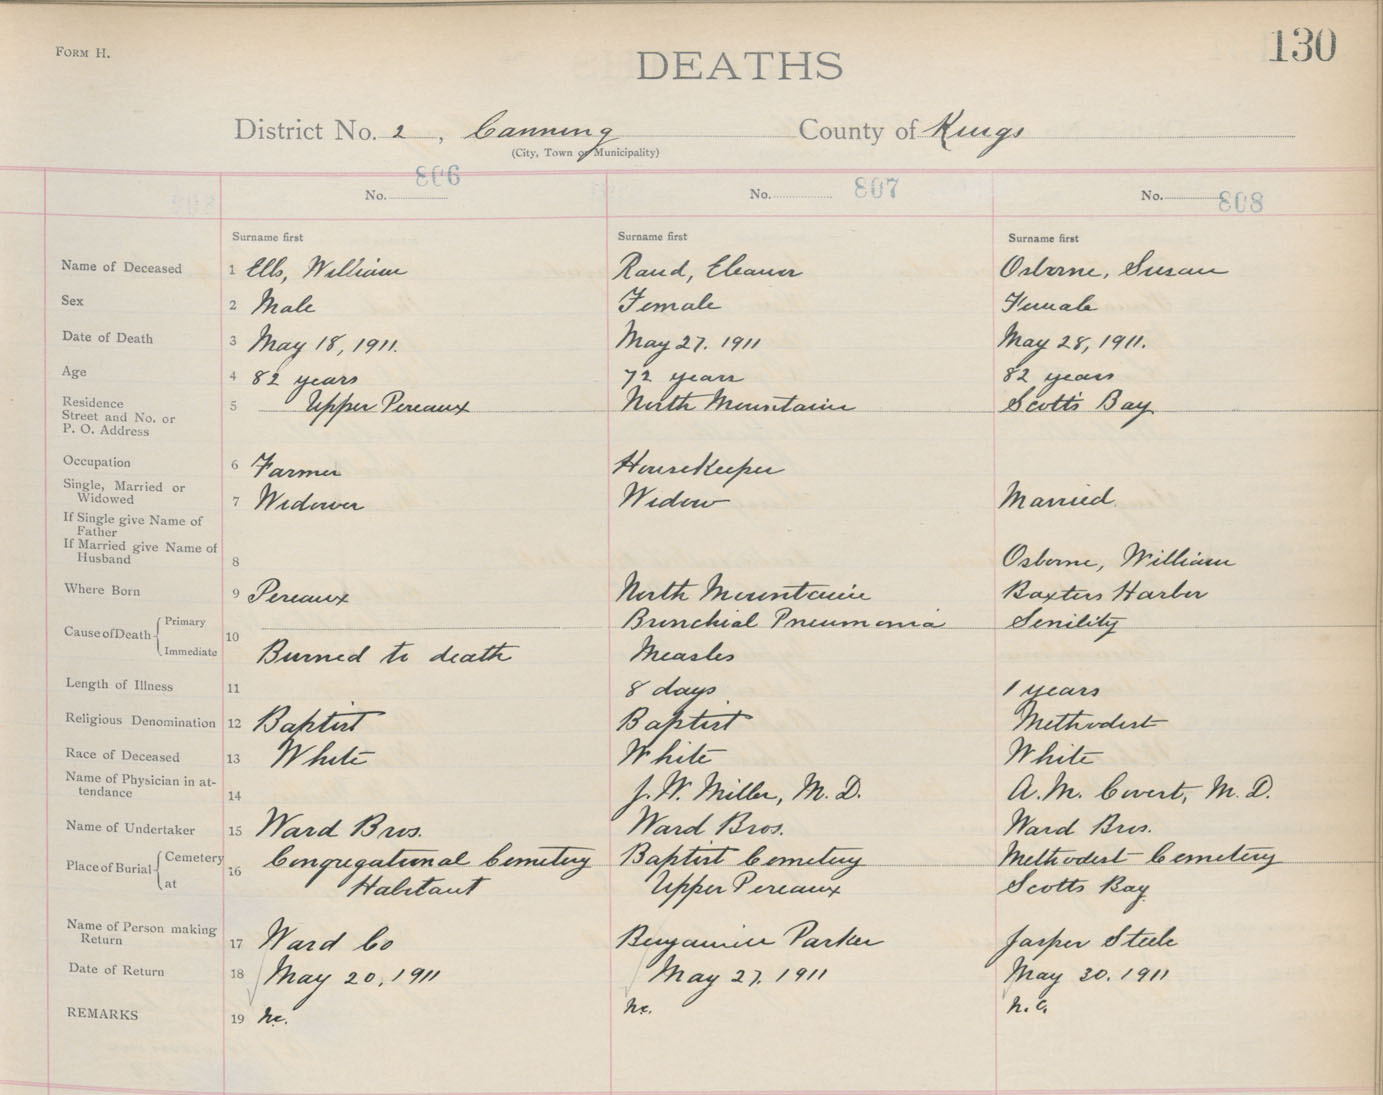 FORM H.
DEATHS
130
District No. 2, Canning County of Kings
(City, Town or Municipality)
No. 806 No. 807 No. 808
Surname first Surname first Surname first
Name of Deceased 1 Ells, William Rand, Eleanor Osborne, Susan
Sex 2 Male Female Female
Date of Death 3 May 18, 1911. May 27. 1911 May 28, 1911.
Age 4 82 years 72 years 82 years
Residence
Street and No. or
P. O. Address 5 Upper Pereaux North Mountain Scotts Bay
Occupation 6 Farmer HouseKeeper
Single, Married or
Widowed 7 Widower Widow Married.
If Single give Name of
Father
If Married give Name of
Husband 8 Osborne, William
Where Born 9 Pereaux North Mountain Baxters Harbor
Cause of Death Primary 10 Bronchial Pneumonia Senility
Immediate Burned to death Measles
Length of Illness 11 8 days 1 years
Religious Denomination 12 Baptist Baptist Methodist
Race of Deceased 13 White White White
Name of Physician in at-
tendance 14 J. W. Miller, M. D. A. M. Covert, M. D.
Name of Undertaker 15 Ward Bros. Ward Bros. Ward Bros.
Place of Burial Cemetery 16 Congregational Cemetery Baptist Cemetery Methodist Cemetery
at Habitant Upper Pereaux Scotts Bay
Name of Person making
Return 17 Ward Co Benjamin Parker Jasper Steele
Date of Return 18 May 20, 1911 May 27, 1911 May 30. 1911
REMARKS 19